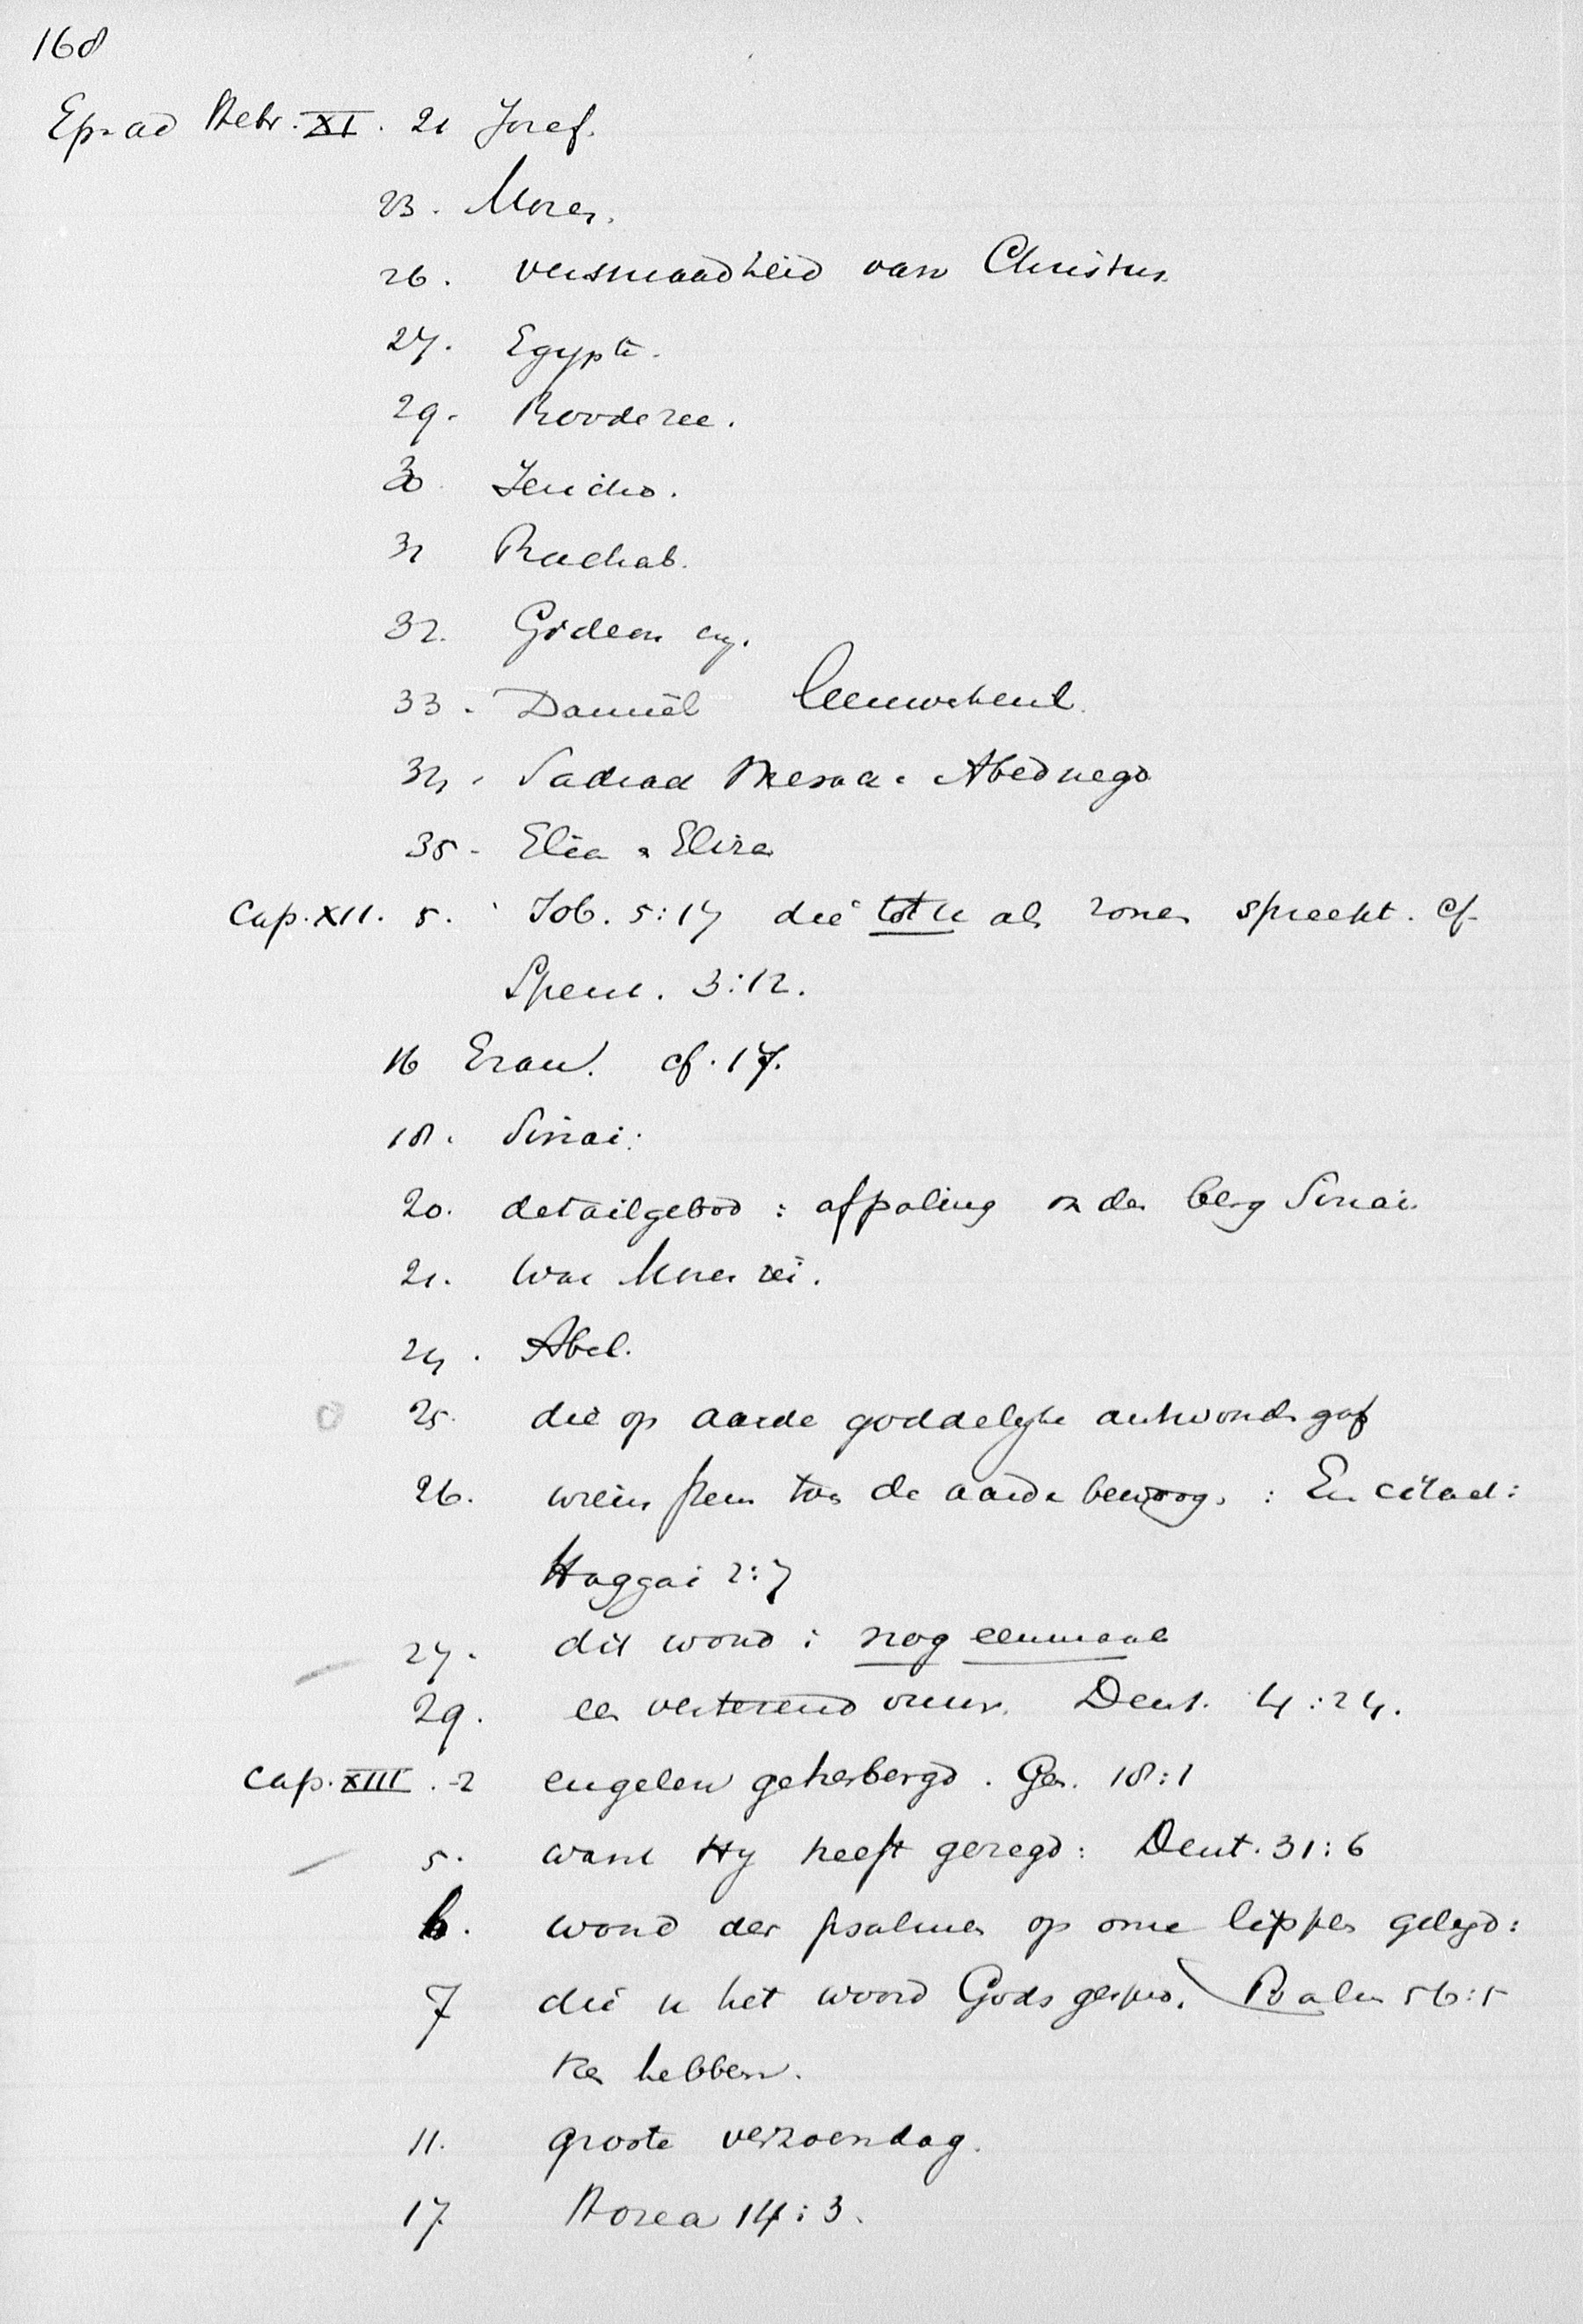 168
Ep. ad Hebr. XI. 21 Josef.
23. Mozes.
26. versmaadheid van Christus.
27. Egypte.
29. Roode zee.
30. Jericho.
31 Rachab.
32. Gideon
33. Daniël leeuwekuil.
34. Sadrach Mesach Abednego
35. Elia & Eliza
Cap. XII. 5. Job. 5:17 die tot u als zonen spreekt. cf.
Spreu. 3:12.
16 Ezau. cf. 17.
18. Sinai:
20. detailgebod: afpaling v. den berg Sinai
21. Wat Mozes zei.
24. Abel.
25. die op aarde goddelyke antwoorden gaf
26. wiens stem toen de aarde bewoog. : En citaat:
Haggai 2:7
27. dit woord: nog eenmaal
29. een verterend vuur. Deut. 4:24.
Cap. XIII. 2 engelen geherbergd. Gen. 18:1
5. want Hy heeft gezegd: Deut. 31:6
6. woord der psalmen op onze lippen gelegd:
7 die u het woord Gods gespro. Psalm 56:5
ken hebben.
11. groote verzoendag.
17 Hozea 14:3.